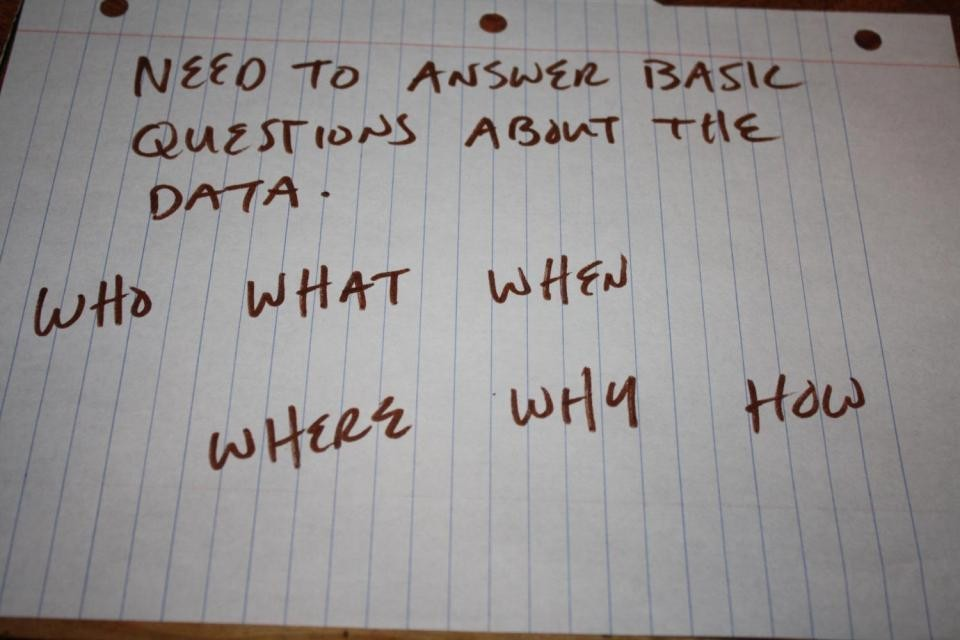 NEED TO ANSWER BASIC
QUESTIONS ABOUT THE
DATA.
WHO WHAT WHEN
WHERE WHY HOW